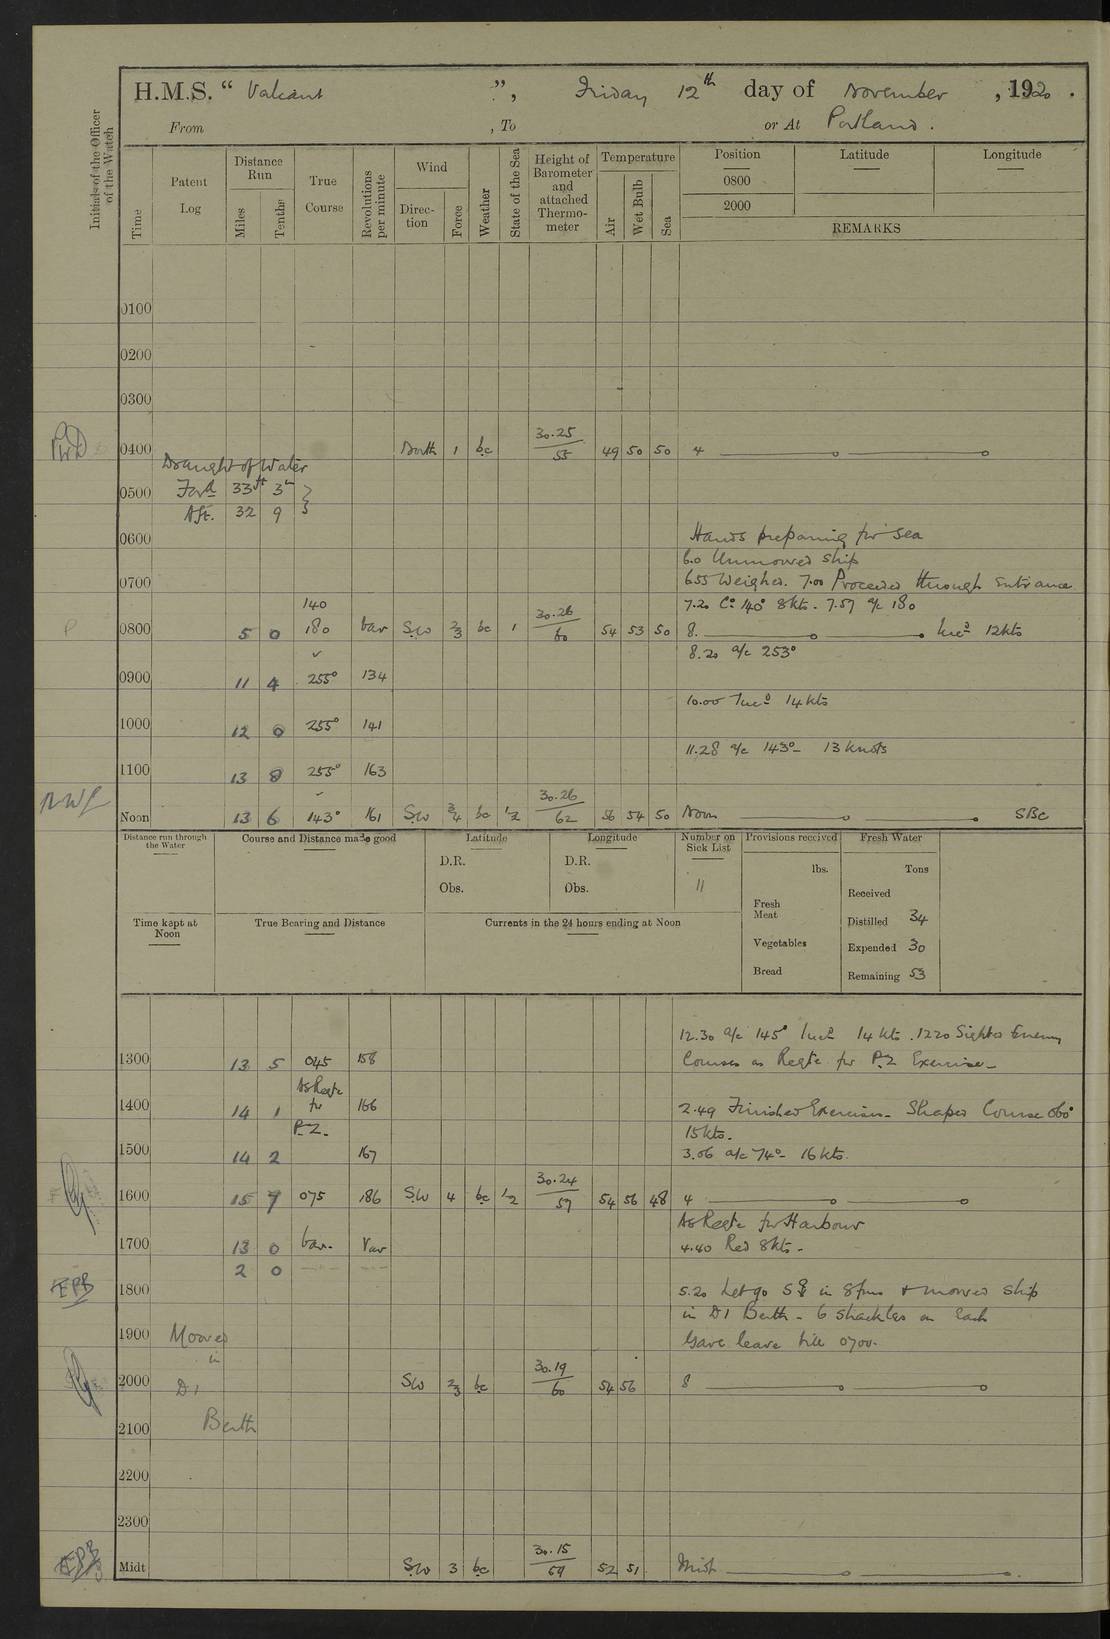 H.M.S. " Valiant ", Friday 12th day of November, 1920.
From , To or At Portland.
Initials of the Officer of the Watch
Time
Patent Log
Distance Run
Miles
Tenths
True Course
Revolutions per minute
Wind
Direction
Force
Weather
State of the Sea
Height of Barometer and attached Thermometer
Temperature
Air
Wet Bulb
Sea
Position
Latitude
Longitude
0800
2000
REMARKS
0100
0200
0300
0400 North 1 bc 30.25/55 49 50 50 4
Draught of Water
Ford 33ft 3in
0500
Aft. 32 9
0600 Hands preparing for sea
6.0 Unmoored ship
0700 6.55 Weighed. 7.00 Proceeded through entrance
140 7.20 Co 140° 8kts. 7.57 a/c 180
0800 5 0 180 Var SW 2/3 bc 1 30.26/60 54 53 50 8. Incd 12kts
8.20 a/c 253°
0900 11 4 255° 134
10.00 Incd 14 kts
1000 12 0 255° 141
11.28 a/c 143° - 13 knots
1100 13 8 255° 163
Noon 13 6 143° 161 SW 3/4 bc 1/2 30.26/62 56 54 50 Noon SBC
Distance run through the Water
Course and Distance made good
Latitude
D.R.
Obs.
Longitude
D.R.
Obs.
Number on Sick List
11
Provisions received
lbs.
Fresh Meat
Vegetables
Bread
Fresh Water
Tons
Received
Distilled 34
Expended 30
Remaining 53
Time kept at Noon
True Bearing and Distance
Currents in the 24 hours ending at Noon
12.30 a/c 145° Incd 14 kts. 1220 Sighted Enemy
1300 13 5 045 158 Courses as Reqte for P.Z Exercise -
As Reqte
1400 14 1 for 166 2.49 Finished Exercise - Shaped Course 060°
P.Z. 15 kts.
1500 14 2 167 3.06 a/c 74° - 16 kts.
1600 15 7 075 186 SW 4 bc 1/2 30.24/59 54 56 48 4
As Reqte for Harbour
1700 13 0 Var. Var 4.40 Red 8kts -
2 0
EPB
1800 5.20 Let go in 8 fms + moored ship
in D1 Berth - 6 shackles on each
1900 Moored Gave leave till 0700.
in
2000 D1 SW 2/3 bc 30.19/60 54 56 8
2100 Berth
2200
2300
EPB
Midt SW 3 bc 30.15/59 52 51 Midt